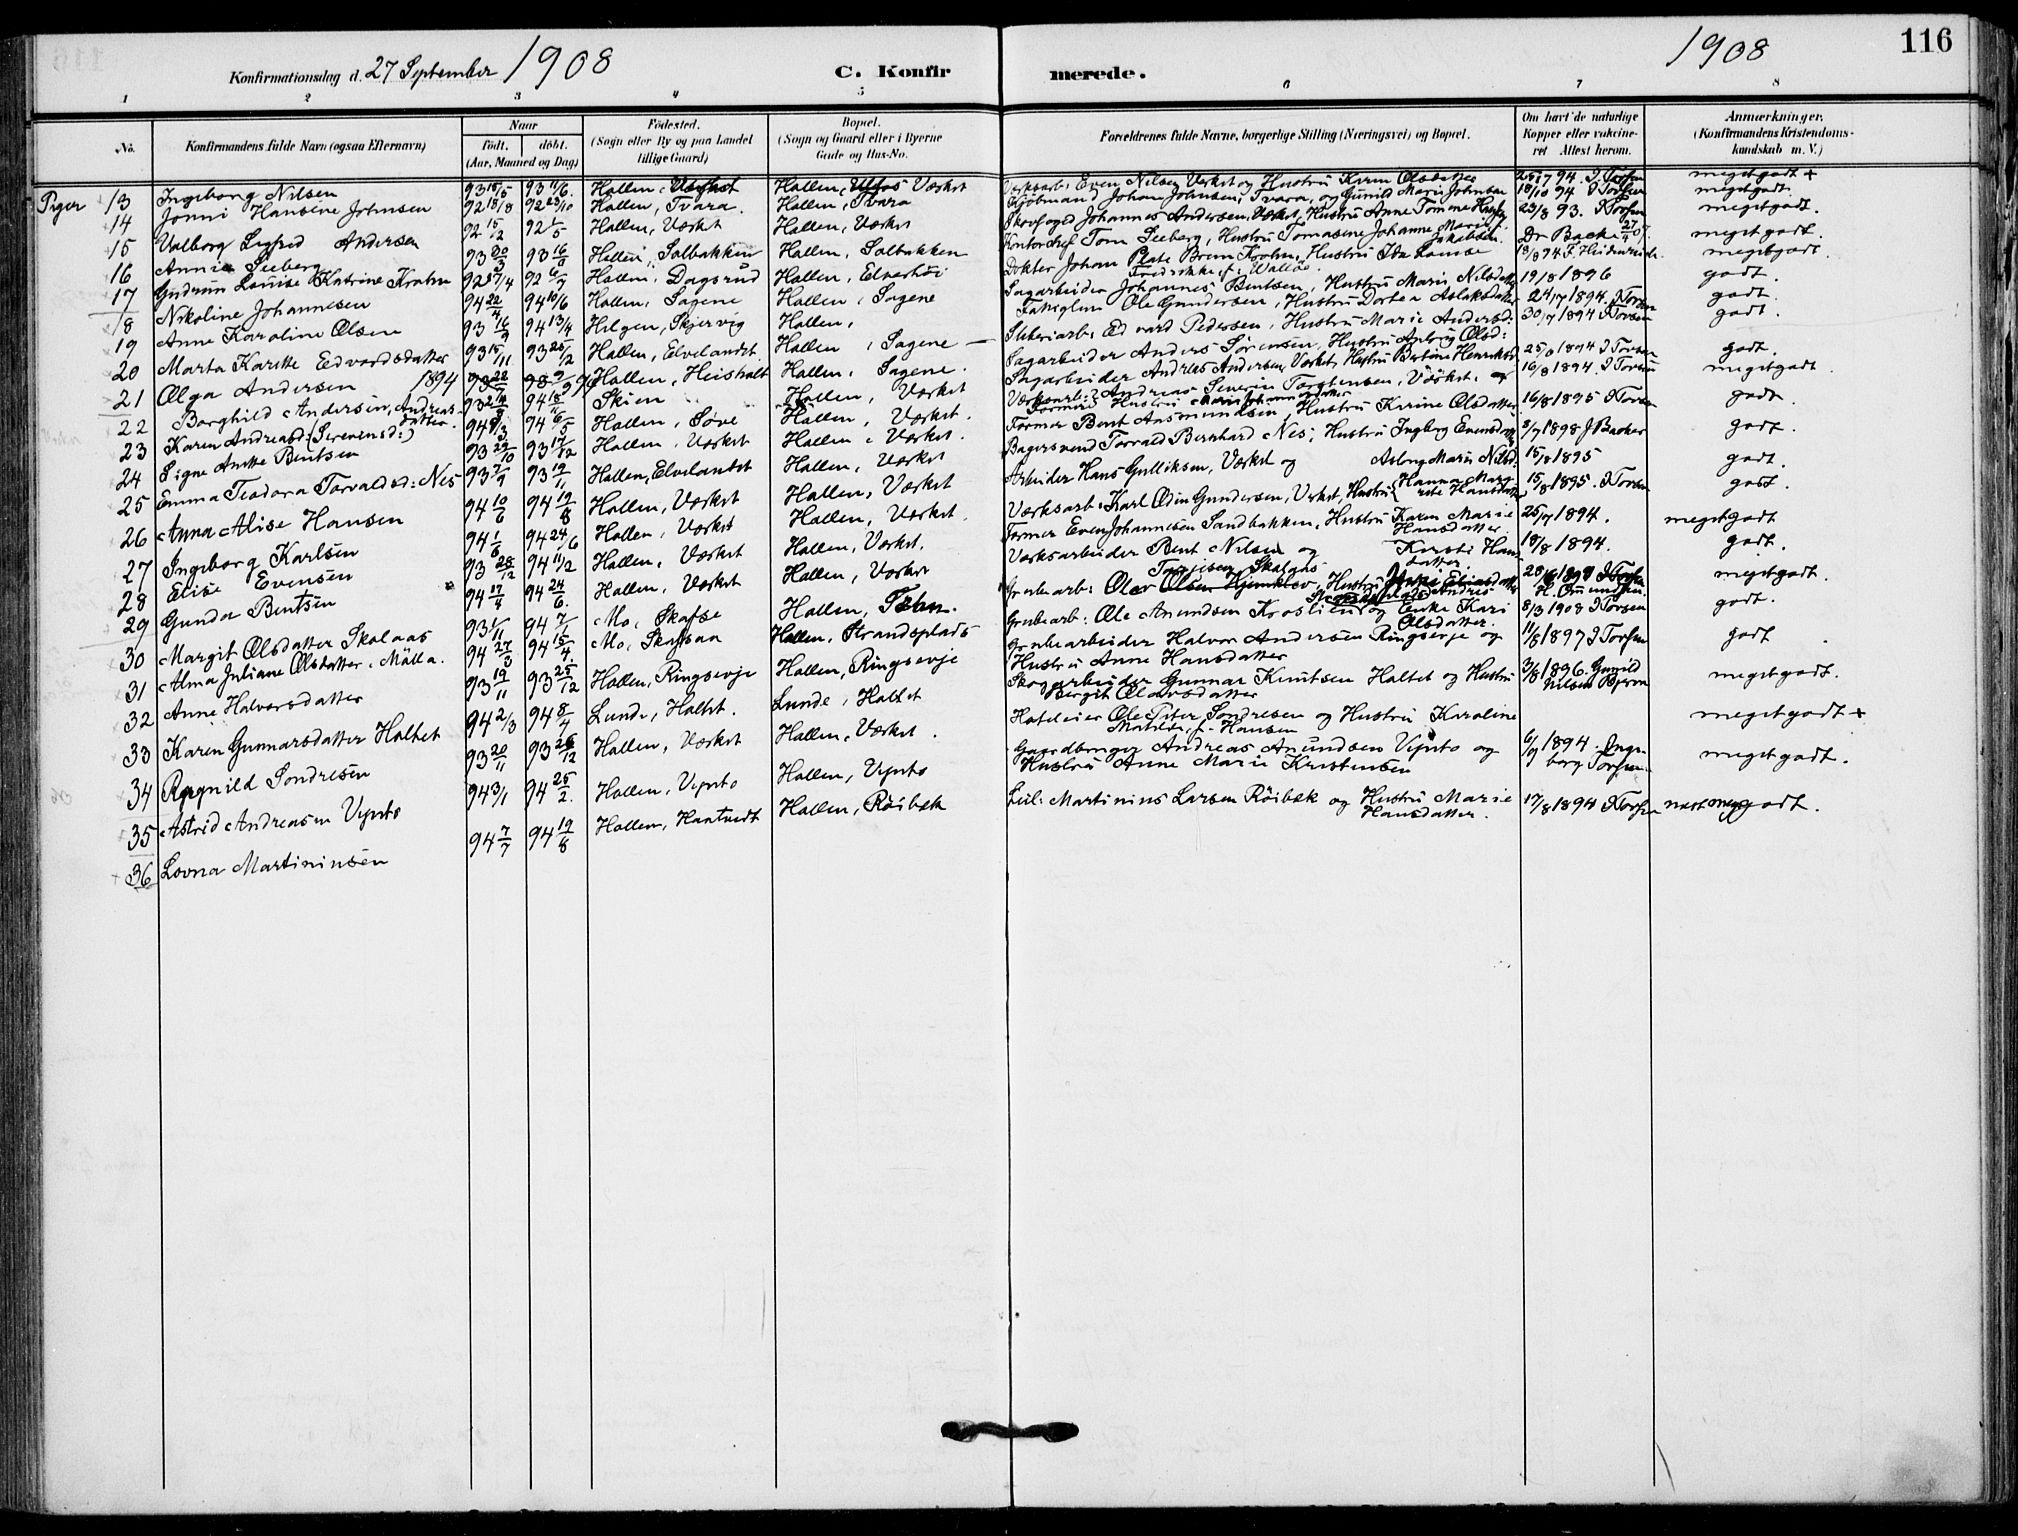 116
Konfirmationsdag d. 27 September 1908
C. Konfirmerede.
1908
1 2 3 4 5 6 7 8
No.
Konfirmandens fulde Navn (ogsaa Efternavn)
Naar
født. døbt.
(Aar, Maaned og Dag)
Fødested.
(Sogn eller By og paa Landet
tillige Gaard)
Bopæl.
(Sogn og Gaard eller i Byerne
Gade og Hus-No.
Forældrenes fulde Navne, borgerlige Stilling (Næringsvei) og Bopæl.
Om havt de naturlige
Kopper eller vaccine-
ret Attest herom.
Anmærkninger.
(Konfirmandens Kristendoms-
kundskab m. V.)
Piger 13 Ingeborg Nilsen 93 15/5 93 11/6 Hollen, Værket Hollen, Ulfos Værket Værksarb: Even Nilsen Værket og Hustru Karen Olsdatter 28/7 94. I. Torsen megetgodt +
14 Jonni Hansene Johnsen 92 18/8 92 23/10 Hollen, Tvara. Hollen, Tvara Kjøbmand Johan Johnsen, Tvara, og Gunild Marie Johnsen 18/10 94 I Torsen megetgodt.
15 Valborg Sigfred Andersen 92 15/2 92 1/5 Hollen, Værket Hollen, Værket Skovfoged Johannes Andersen, Værket, Hustru Anne Tomine 23/8 93. I Torsen megetgodt.
16 Annie Seeberg 93 30/3 93 16/8 Hollen, Solbakken Hollen, Solbakken Kontorchef Tom Seeberg, Hustru Tomasine Johanne Marie Jakobsen Dr Backe 27/4 07. megetgodt.
17 Gudrun Louise Katrine Krohn 92 27/4 92 6/7 Hollen, Dagsrud Hollen, Elverhøi Dokter Johan Plate Bruun Krohn, Hustru Ida Louise Fredrikke f. Walløe. 13/8 94 F. Heidenreich. megetgodt.
18 Nikoline Johannesen 94 22/4 94 10/6 Hollen, Sagene Hollen, Sagene Sagarbeider Johannes Bentsen, Hustru Maria Nilsdatter 19/8 1896 godt.
19 Anne Karoline Olsen 93 16/9 94 13/4 Helgen, Skjervig Hollen, Ole Gundersen, Hustru Dortea Aslaksdatter 24/7 1894. I Torsen godt.
20 Marta Karette Edvardsdatter 93 15/11 93 25/12 Hollen, Elvelandet Hollen, Sagene Sliberiarb: Edvard Pedersen, Hustru Marie Andersd: 30/7 1894 I Torsen godt.
21 Olga Andersen 1894 93 22/ 93 9/9 94 Hollen, Heisholt Hollen, Sagene. Sagarbeider Anders Sørensen, Hustru Aslaug Olsd: 25/8 1894 I Torsen godt.
22 Borghild Andersen, Andreasdatter 93 14/ 94 18/11 Skien Hollen, Værket Sagarbeider Andreas Andersen, Værket, Hustru Bertine Henriksd: 16/8 1894. I Torsen megetgodt
23 Karen Andreasd: (Severensd:) 94 9/3 94 6/5 Hollen, Søve Hollen, Værket. Værksarb: Andreas Severin Torstensen, Værket, 16/8 1895 I Torsen godt.
24 Signe Anette Bentsen 93 29/10 93 17/12 Hollen, Værket Hollen, Værket. Former Bent Aasmundsen, Hustru Karine Olsdatter 3/7 1898 J Backer godt.
25 Emma Teodora Torvaldsd: Nes 93 7/9 93 19/11 Hollen, Elvelandet Hollen, Værket Bagersvend Torvald Bernhard Nes, Hustru Ingbrg Evensdatter 15/8 1895 godt.
26 Anna Alise Hansen 94 10/6 94 19/8 Hollen, Værket Hollen, Værket Arbeider Hans Gulliksen, Værket og Aslaug Marie Nilsd: 15/8 1895. I Torsen godt.
27 Ingeborg Karlsen 94 1/6 94 24/6 Hollen, Værket Hollen, Værket. Værksarb: Karl Odin Gundersen, Værket, Hustru Hanna Margrete Hansdatter 25/7 1894. megetgodt
28 Elise Evensen 93 28/12 94 11/2 Hollen, Værket Hollen, Værket. Former Even Johannesen Sandbakken, Hustru Karen Marie Hansdatter 18/8 1894. godt.
29 Gunda Bentsen 94 17/4 94 24/6. Hollen, Værket Hollen, Værket Værksarbeider Bent Nilsen og Kirsti Hansdatter 28/6 1898 I Torsen megetgodt.
30 Margit Olsdatter Skalaas 93 1/11 94 7/1 Mo, Skafse Hollen, Tebn. Grubearb: Olav Olsen Torgisberg Skalaas, Hustru H. Omundsen godt.
31 Alma Juliane Olsdatter Mælla. 94 27/3 94 15/4. Mo, Skafsaa Hollen, Strandsplads Grubearb: Ole Anundsen Kroslien og Enke Kari Olsdatter. 8/3 1908 I Torsen godt.
32 Anne Halvorsdatter 93 19/11 93 25/12 Hollen, Ringsevje Hollen, Ringsevje Grubearbeider Halvor Andersen Ringsevje og Hustru Anne Hansdatter 11/8 1897 I Torsen megetgodt.
33 Karen Gunnarsdatter Holtet 94 2/3 94 8/4 Lunde, Holtet. Lunde, Holtet Skogarbeider Gunnar Knutsen Holtet og Hustru Bergit Olavsdatter 3/8 1896. Gunild Nilsen Bjerva megetgodt.
34 Ragnild Sondresen 93 20/11 93 26/12 Hollen, Værket Hollen, Værket. Hoteleier Ole Peter Sondresen og Hustru Karoline Matilde, f. Hansen megetgodt +
35 Astrid Andreasen Vipeto 94 3/1 94 25/2. Hollen, Vipeto Hollen, Vipeto Gaardbruger Andreas Anundsen Vipeto og Hustru Anne Marie Kristensen 6/9 1894. Ingeborg Torsen. megetgodt.
36 Lovna Martininsen 94 7/7 94 19/8 Hollen, Hantvedt Hollen, Røibæk Leil: Martinius Larsen Røibæk og Hustru Marie Hansdatter. 17/8 1894 I Torsen næst megetgodt.